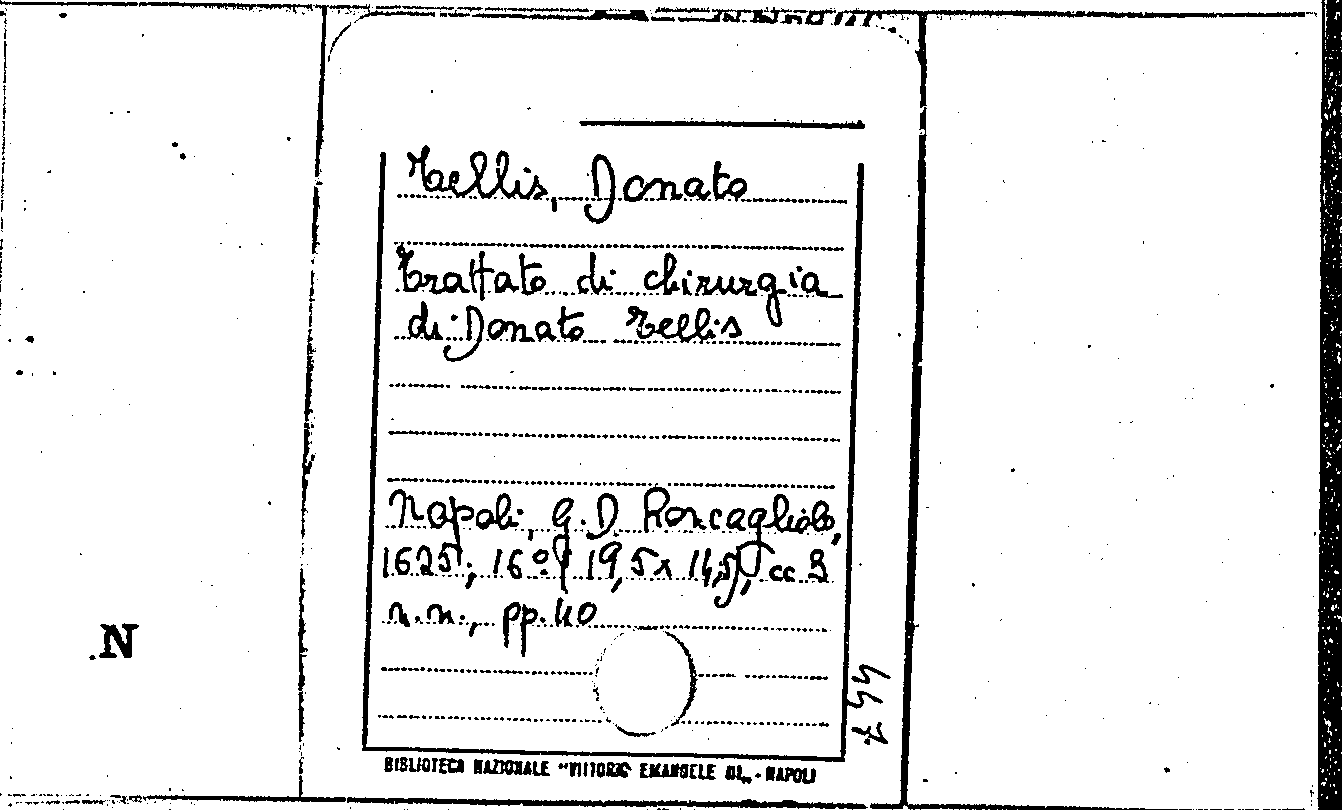 Tellis, Donato
Trattato di chirurgia
di Donato Tellis
Napoli, G. D. Roncagliolo,
1625; 16º (19,5 x 14,5), cc 3
n.n., pp. 40
BIBLIOTECA NAZIONALE "VITTORIO EMANUELE III„ - NAPOLI
N